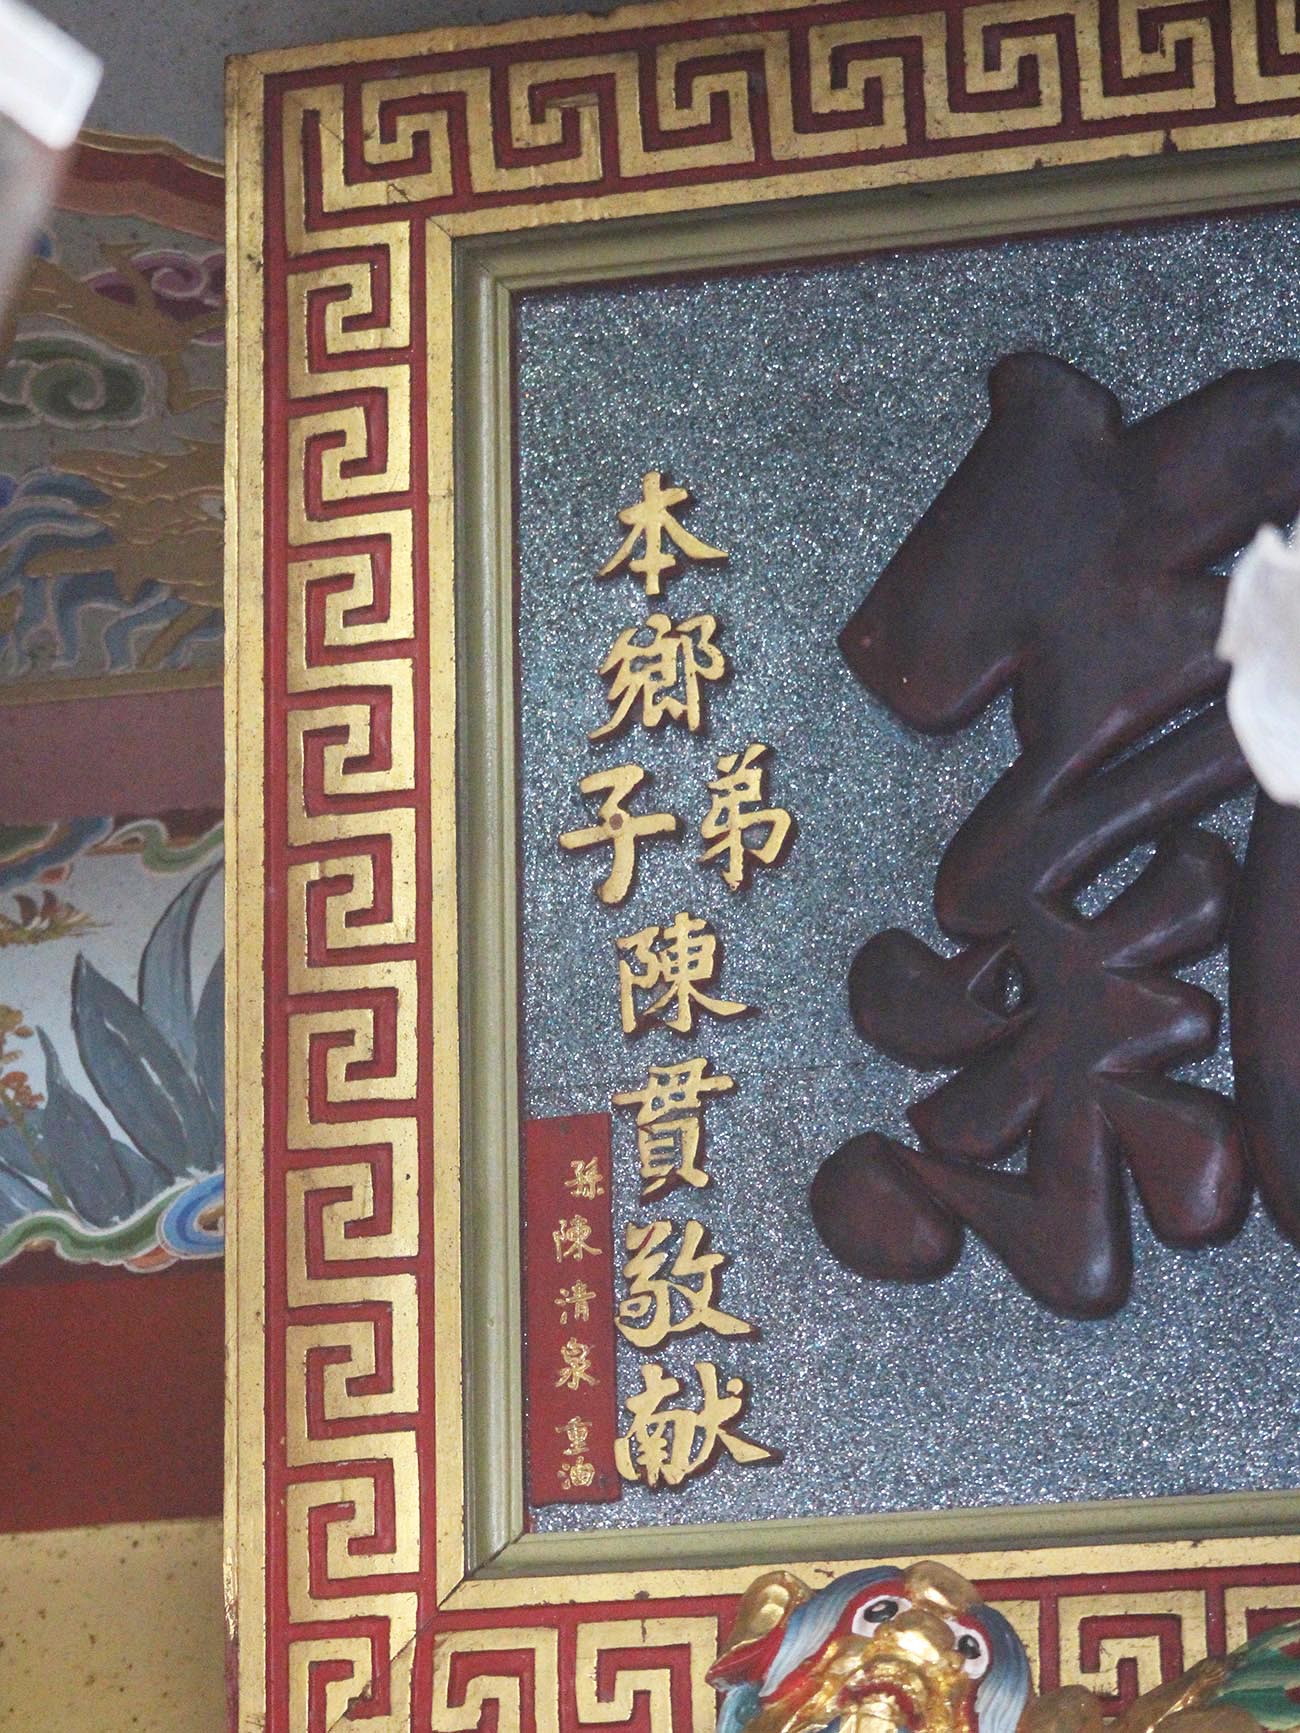 本鄉弟子陳貫敬献
孫陳清泉重油